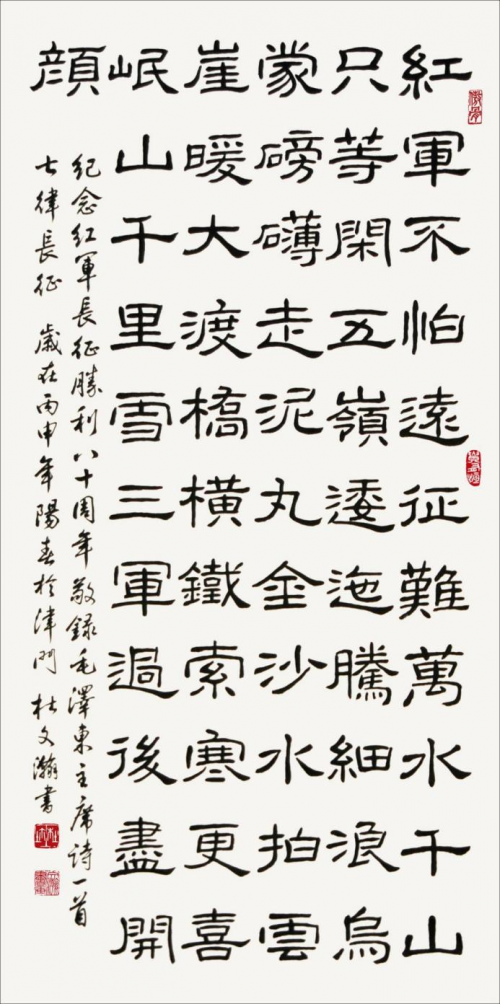 紅軍不怕遠征難萬水千山
只等閑五嶺逶迤騰細浪烏
蒙磅礴走泥丸金沙水拍雲
崖暖大渡橋橫鐵索寒更喜
岷山千里雪三軍過後盡開
顔
紀念紅軍長征勝利八十周年敬録毛澤東主席诗一首
七律長征 歲在丙申年陽春於津門 杜文瀚書